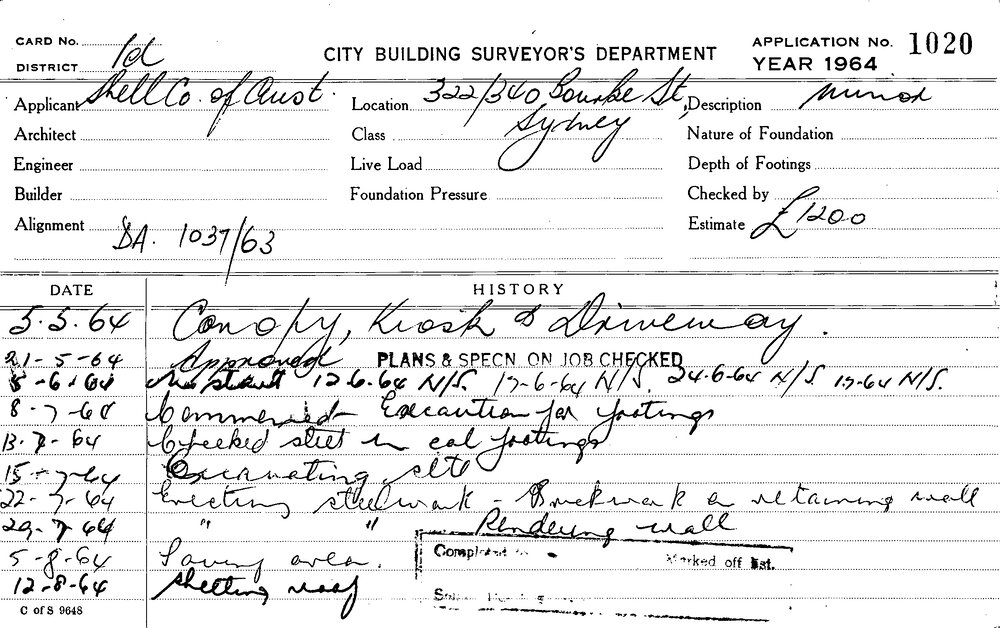 CARD No.
DISTRICT 1d
CITY BUILDING SURVEYOR'S DEPARTMENT
APPLICATION No. 1020
YEAR 1964
Applicant Shell Co. of Aust.
Location 322/340 Bourke St, Sydney
Description Minor
Architect
Class
Nature of Foundation
Engineer
Live Load
Depth of Footings
Builder
Foundation Pressure
Checked by
Alignment DA. 1037/63
Estimate £1200
DATE HISTORY
5.5.64 Canopy, Kiosk & Driveway.
21-5-64 Approved PLANS & SPECN ON JOB CHECKED
5-6-64 12.6.64 N/S. 17-6-64 N/S. 24-6-64 N/S N/S.
8-7-64 Commenced Excavation for footings
13-7-64 Checked steel in col footings
15-7-64 Excavating site
22-7-64 Erecting steelwork - Brickwork on retaining wall
29-7-64 " " Rendering wall
5-8-64 Paving area.
12-8-64 Sheeting roof
Completed Marked off list.
C of S 9648